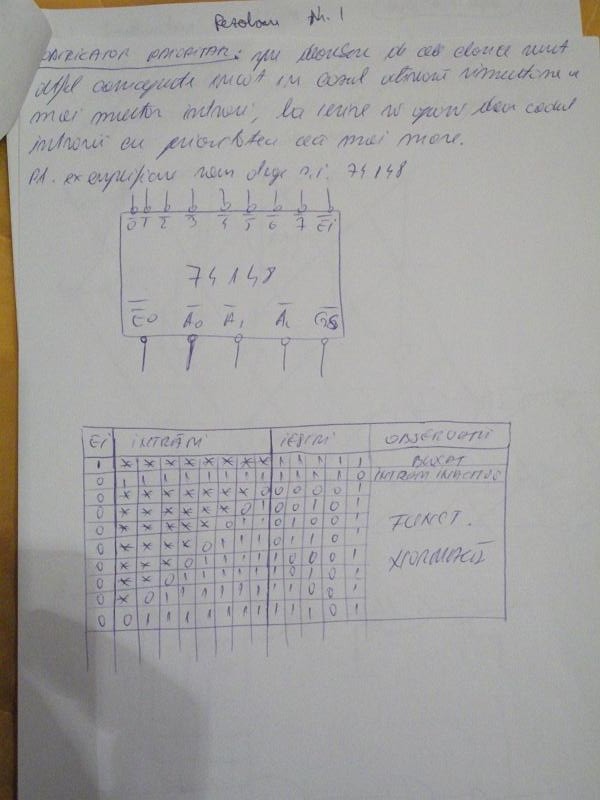 Nr. 1
CODIFICATOR PRIORITAR: spre deosebire de cele
astfel concepute încât în cazul
mai multor intrări, la ieșire va apare doar codul
intrării cu prioritatea cea mai mare.
Pt. exemplificare vom alege c.i. 74148
0 1 2 3 4 5 6 7 Ei
74148
E0 A0 A1 A2 GS
Ei INTRĂRI IEȘIRI OBSERVAȚII
1 x x x x x x x x 1 1 1 1 1 BLOCAT
0 1 1 1 1 1 1 1 1 1 1 1 1 0 INTRĂRI INACTIVE
0 x x x x x x x 0 0 0 0 0 1
0 x x x x x x 0 1 0 0 1 0 1
0 x x x x x 0 1 1 0 1 0 0 1 FUNCT.
0 x x x x 0 1 1 1 0 1 1 0 1
0 x x x 0 1 1 1 1 1 0 0 0 1 NORMALĂ
0 x x 0 1 1 1 1 1 1 0 1 0 1
0 x 0 1 1 1 1 1 1 1 1 0 0 1
0 0 1 1 1 1 1 1 1 1 1 1 0 1